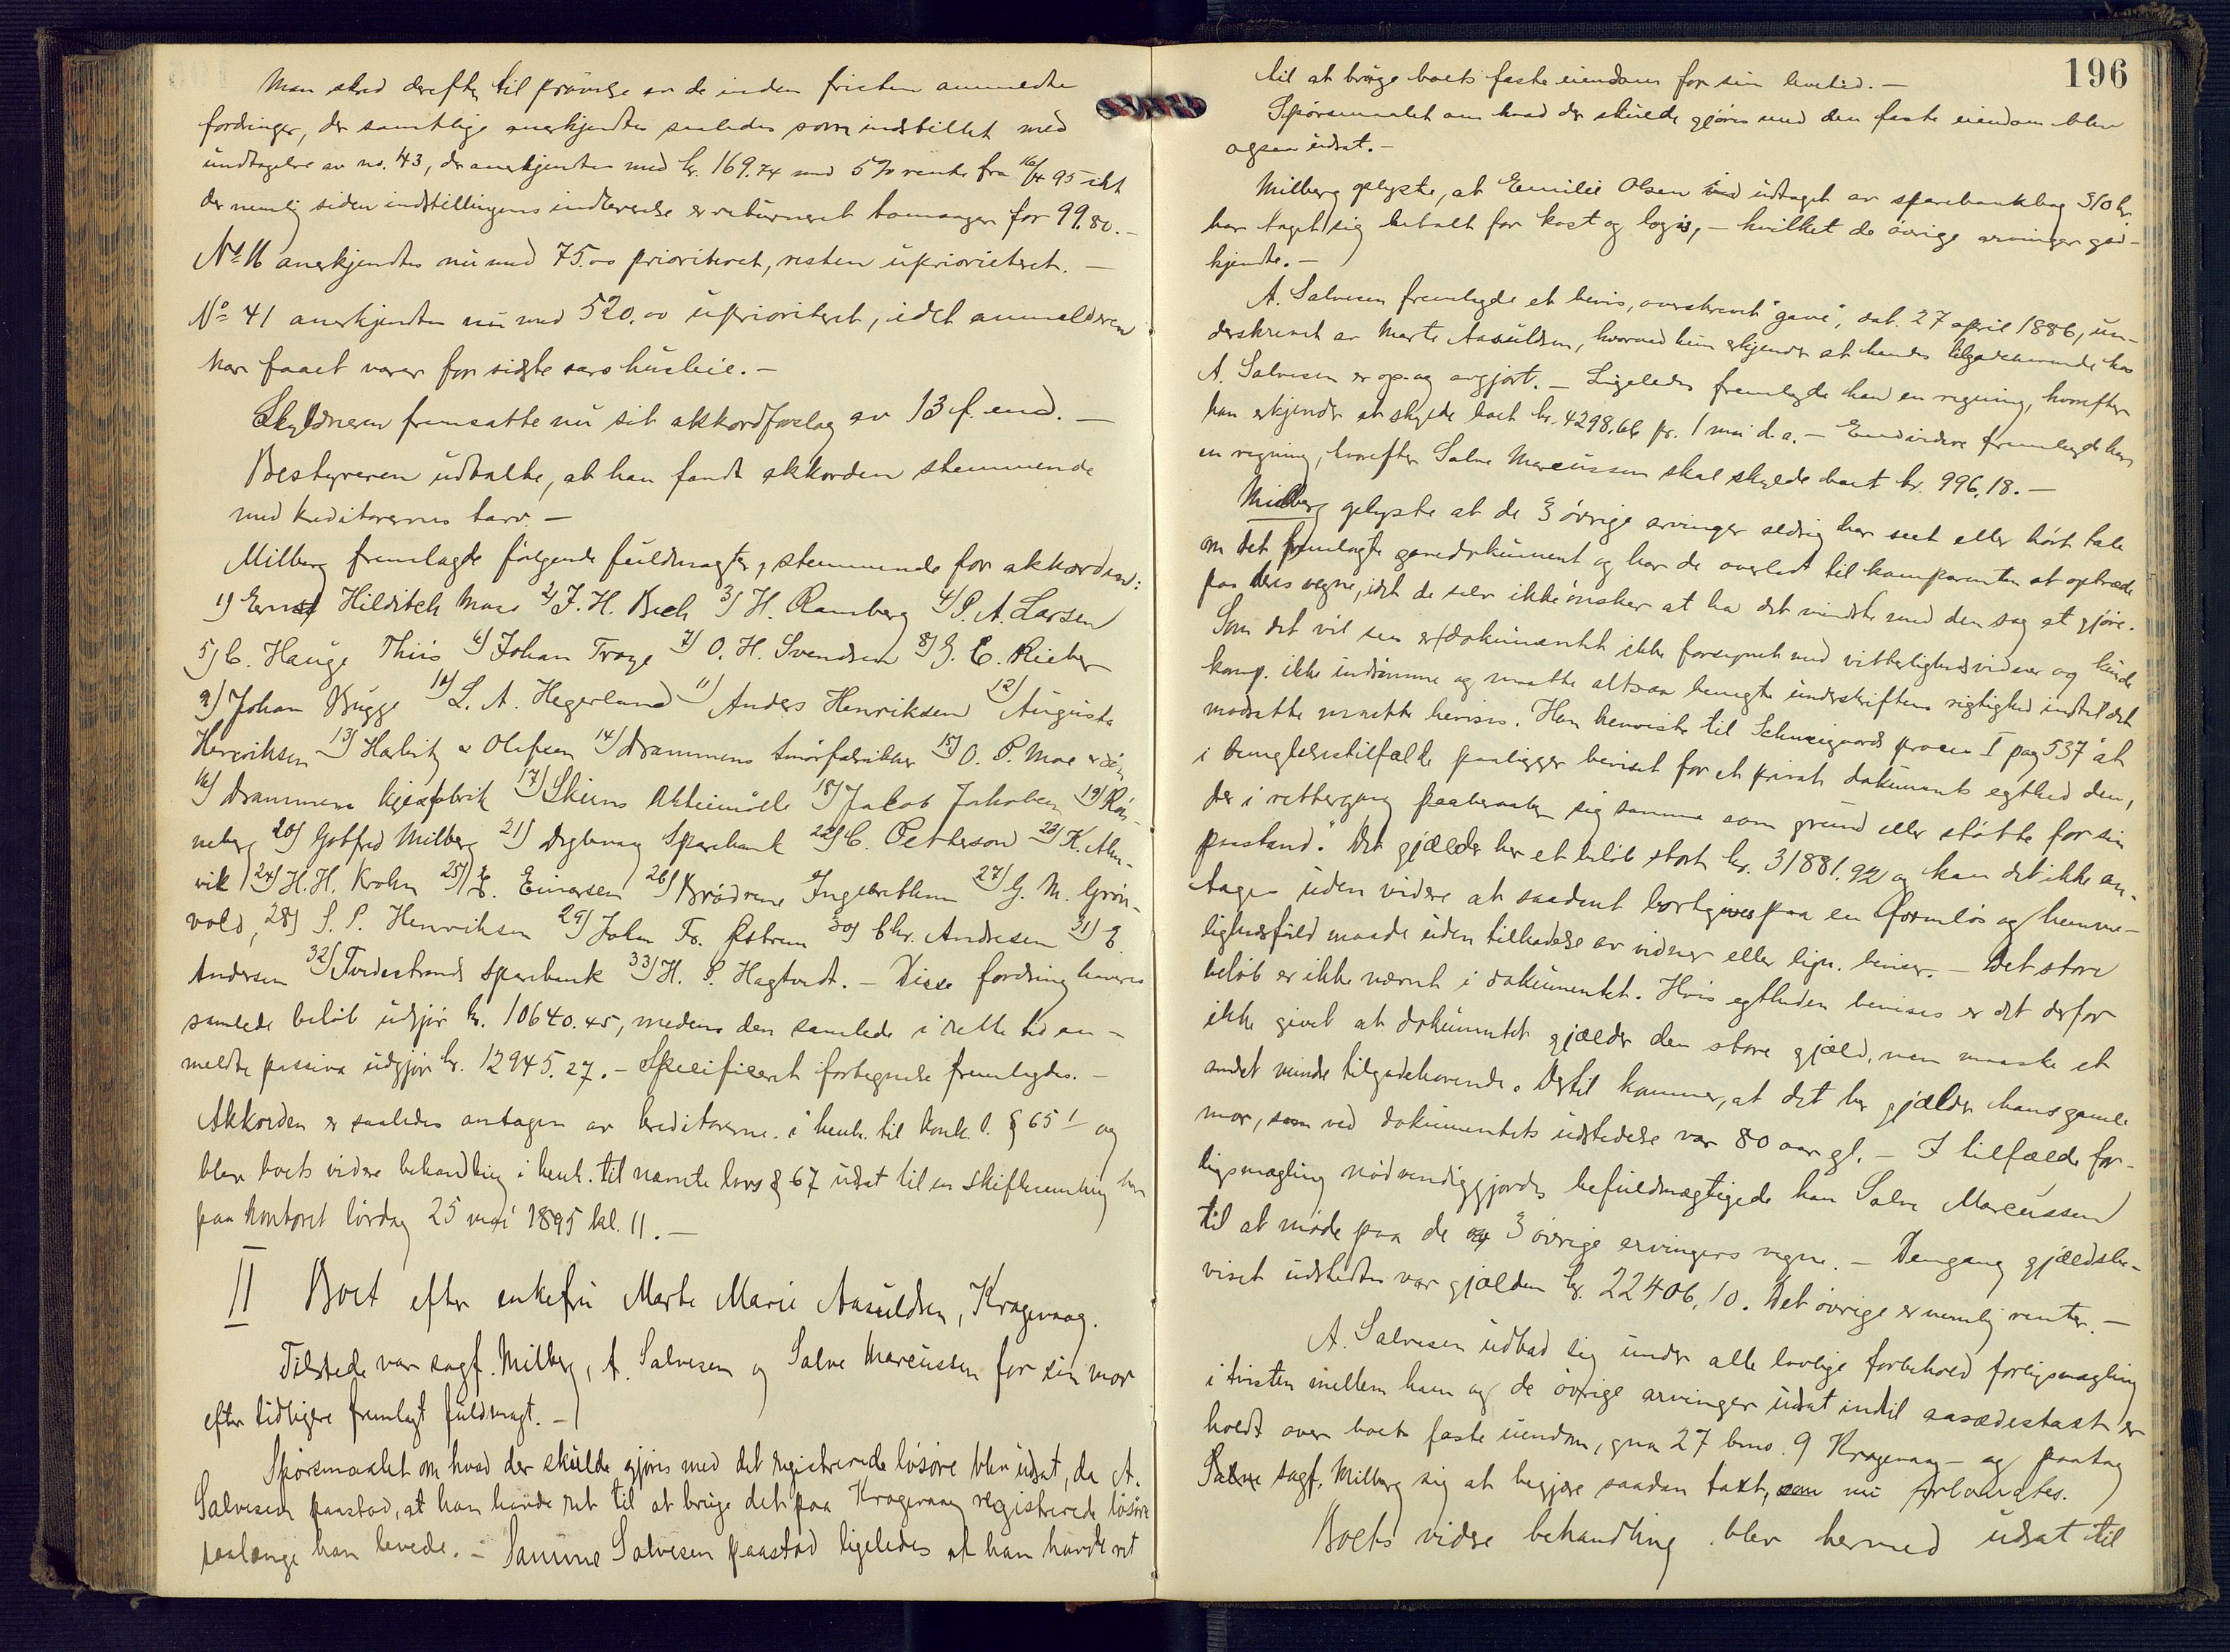 Man skred derefter til prövelse av de inden fristen anmeldte
fordringer, der samtlige anerkjendtes saaledes som indstillet med
undtagelse av no. 43, der anerkjentes med kr. 169.74 med 5% rente fra 16/4 95 idet
der nemlig siden indstillingens indleverelse er returneret tomanger for 99.80.-
No 16 anerkjendtes nu med 75.00 prioriteret, resten uprioriteret. -
No 41 anerkjendtes nu med 520.00 uprioriteret, idet anmelderen
har faaet varer for sidste aars husleie. -
Skyldneren fremsatte nu sit akkordforslag av 13 f. end. -
Bestyreren udtalte, at han fandt akkorden stemmende
med kreditorernes tarv. -
Milberg fremlagde fölgende fuldmagter, stemmende for akkorden:
1) Ernst Hilditch Maas 2) J. H. Bech 3) H. Ramberg 4) P. A. Larsen
5) C. Hauge Thiis 6) Johan Troye 7) O. H. Svendsen 8) G. C. Rieber
9) Johan Bugge 10) L. A. Hegerland 11) Anders Henriksen 12) Augusta
Henriksen 13) Harbitz & Olefsen 14) Drammens smörfabrikker 15) O. P. Moe & sön
16) Drammens kjexfabrik 17) Skiens Aktiemölle 18) Jakob Jakobsen 19) Rön-
neberg 20) Gotfred Milberg 21) Dybvaag Sparebank 22) C. Petterson 23) K. Aln-
vik 24) H. H. Krohn 25) E. Einersen 26) Brödrene Ingebrethsen 27) G. M. Grön-
vold, 28) S. P. Henriksen 29) John Fr. Östrem 30) Chr. Andresen 31) E.
Andersen 32) Tvedestrands Sparebank 33) H. P. Hagtvedt. - Disse fordringshaveres
samlede belöb udgjör kr. 10640.45, medens den samlede i rette tid an-
meldte passiva udgjör kr. 12945.27. - Specificeret fortegnelse fremlagdes. -
Akkorden er saaledes antagen av kreditorerne i henh. til konk. l. § 65 1 og
blev boets videre behandling i henh. til nævnte lovs § 67 udsat til en skiftesamling her
paa kontoret lördag 25 mai 1895 kl. 11. -
II Boet efter enkefru Marte Marie Aasuldsen, Kragevaag.
Tilstede var sagf. Milberg, A. Salvesen og Salve Marcussen for sin mor
efter tidligere fremlagt fuldmagt. -
Spörsmaalet om hvad der skulde gjöres med det registrerede lösöre blev udsat, da A.
Salvesen paastod, at han havde ret til at bruge det paa Kragevaag registrerede lösöre
saalænge han levede. - Samme Salvesen paastod ligeledes at han havde ret
196
til at bruge boets faste eiendom for sin levetid. -
Spörsmaalet om hvad der skulde gjöres med den faste eiendom blev
ogsaa udsat. -
Milberg oplyste, at Emilie Olsen ved udtaget av sparebankbog 310 kr.
har taget sig betalt for kost og logis, - hvilket de övrige arvinger god-
kjendte. -
A. Salvesen fremlagde et bevis, overskrevet "gave", dat. 27 april 1886, un-
derskrevet av Marte Aasuldsen, hvorved hun erkjender at hendes tilgodehavende hos
A. Salvesen er op- og avgjort. - Ligeledes fremlagde han en regning, hvorefter
han erkjender at skylde boet kr. 4298.66 pr. 1 mai d. a. - Endvidere fremlagde han
en regning, hvorefter Salve Marcussen skal skylde boet kr. 996.18. -
Milberg oplyste at de 3 övrige arvinger aldrig har seet eller hört tale
om det fremlagte gavedokument og har de overladt til komparenten at optræde
paa deres vegne, idet de selv ikke önsker at ha det mindste med den sag at gjöre.
Som det vil sees er dokumentet ikke forsynet med vitterlighedsvidner og kunde
komp. ikke indrömme og maatte altsaa benegte underskriftens rigtighed indtil det
modsatte maatte bevises. Han henviste til Schweigaards proces I pag 537 "at
i benegtelsestilfælde paaligger beviset for et privat dokuments egthed den,
der i rettergang paaberaaber sig samme som grund eller stötte for sin
paastand." Det gjælder her et belöb stort kr. 31881.92 og kan det ikke an-
tages uden videre at saadant bortgives paa en formlös og hemme-
lighedsfuld maade uden tilkaldelse av vidner eller lign. beviser. - Det store
belöb er ikke nævnt i dokumentet. Hvis egtheden bevises er det derfor
ikke givet at dokumentet gjælder den store gjæld, men maaske et
andet mindre tilgodehavende. Dertil kommer, at det her gjælder hans gamle
mor, som ved dokumentets udstedelse var 80 aar gl. - I tilfælde for-
ligsmægling nödvendiggjordes befuldmægtigede han Salve Marcussen
til at möde paa de 3 övrige arvingers vegne. - Dengang gjældsbe-
viset udstedtes var gjælden kr. 22406,10. Det övrige er nemlig renter. -
A. Salvesen udbad sig under alle lovlige forbehold forligsmægling
i tvisten mellem ham og de övrige arvinger udsat indtil aasædestaxt er
holdt over boets faste eiendom, gno 27 bno. 9 Kragevaag - og paatog
Salve sagf. Milberg sig at begjære saadan taxt, som nu forlangtes.
Boets videre behandling blev hermed udsat til